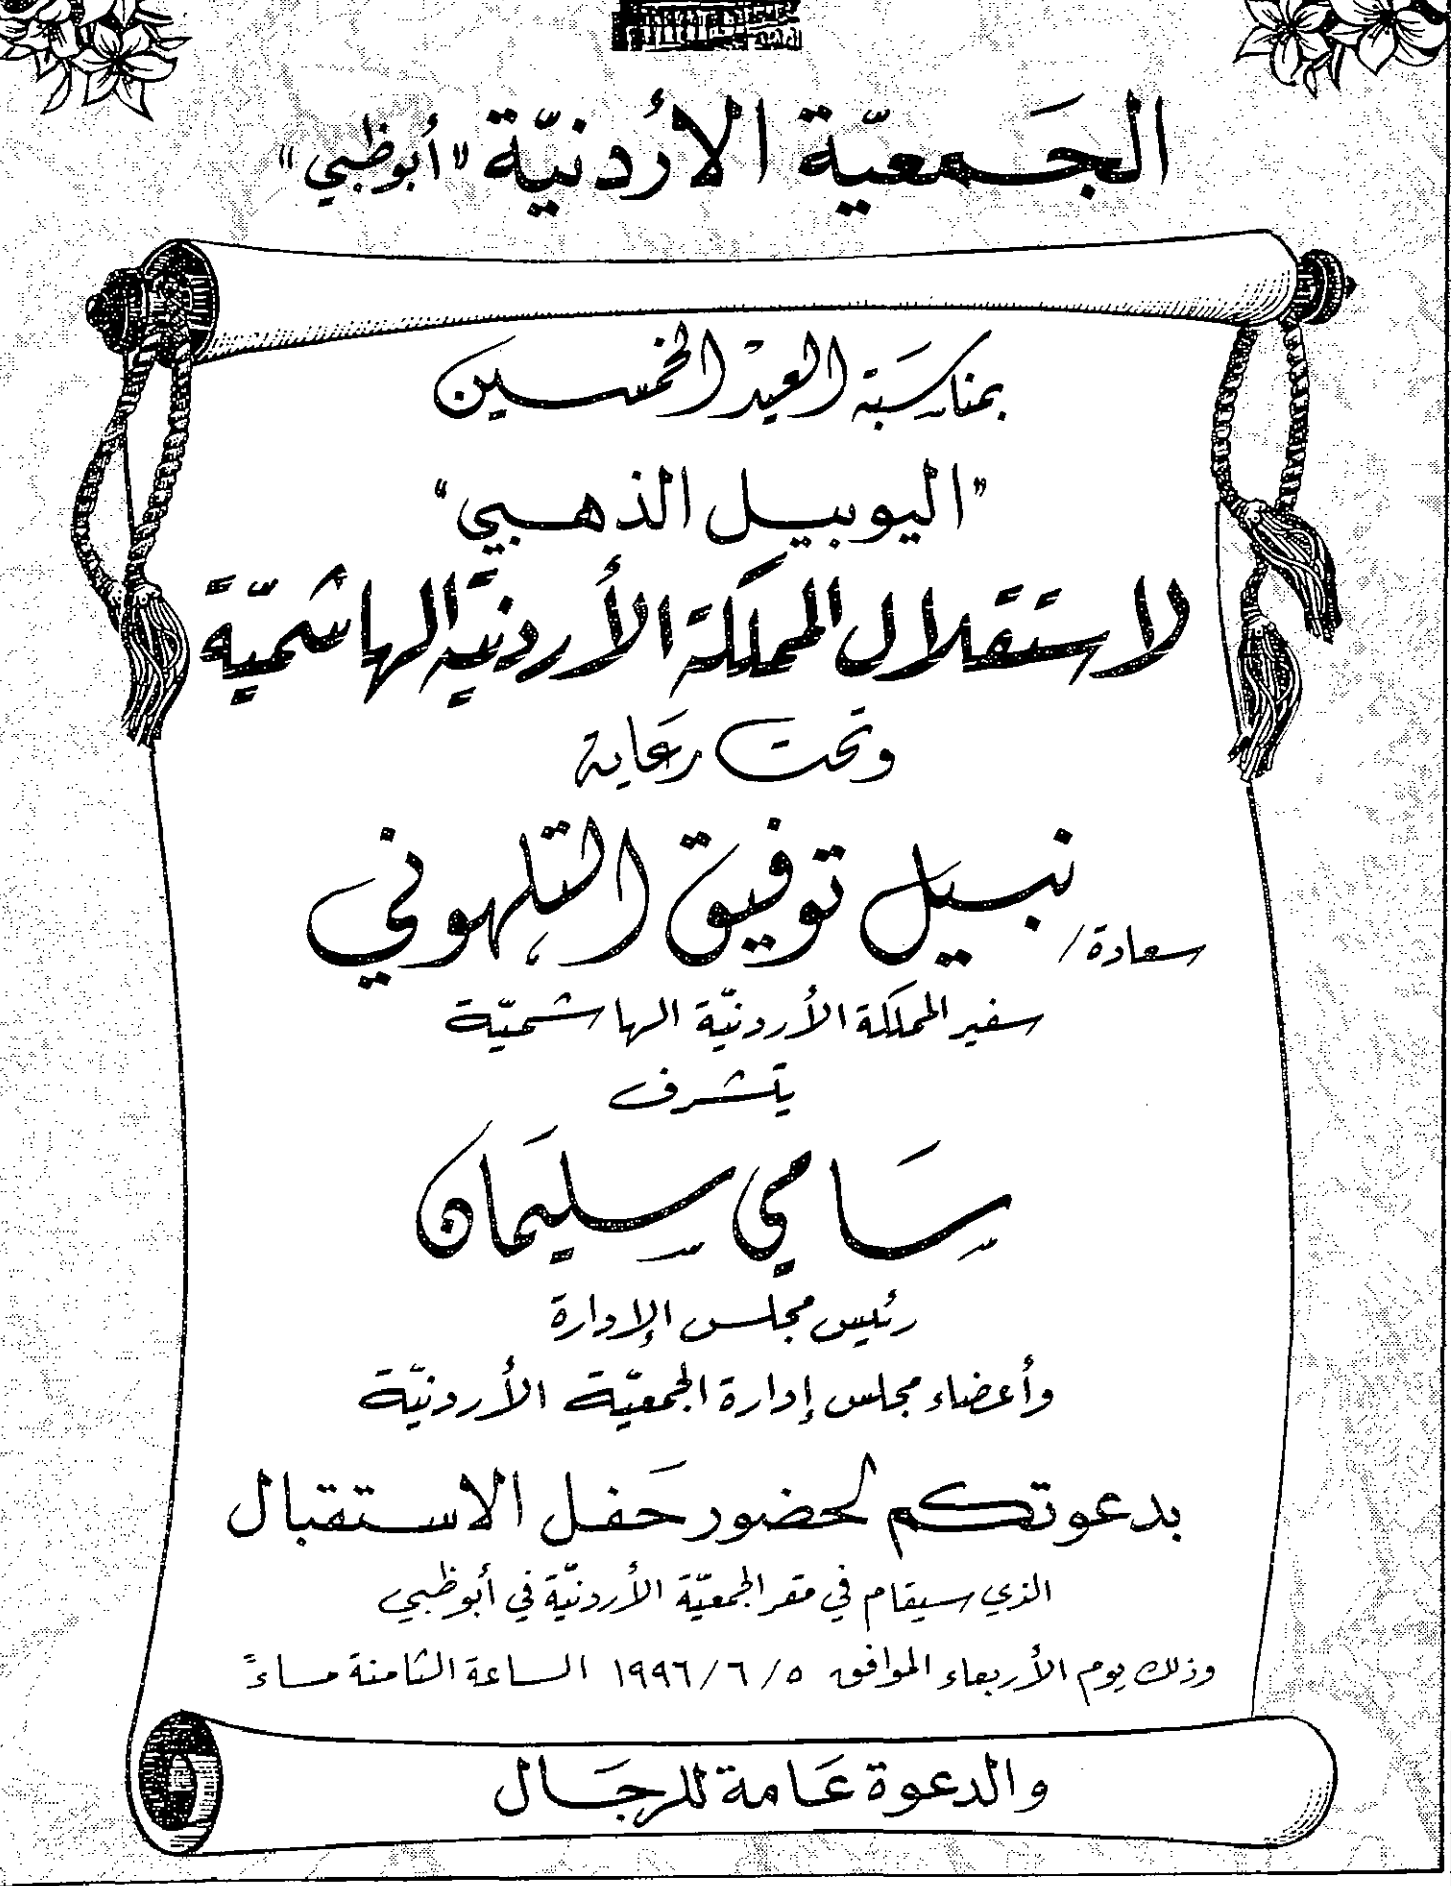 الجَمعيّة الأردنيّة «أبوظبي»
بمناسَبة العيد الخمسين
"اليوبيل الذهبي"
لاستقلال المملكة الأردنيّة الهاشميّة
وتحت رعَاية
سعادة/ نبيل توفيق التلهوني
سفير المملكة الأردنيّة الهاشميّة
يتشرف
سَامي سليمَان
رئيس مجلس الإدارة
وأعضاء مجلس إدارة الجمعيّة الأردنيّة
بدعوتكم لحضور حَفل الاستقبال
الذي سيقام في مقر الجمعيّة الأردنيّة في أبوظبي
وذلك يوم الأربعاء الموافق ٥/٦/١٩٩٦ الساعة الثامنة مساءً
والدعوة عَامة للرجَال